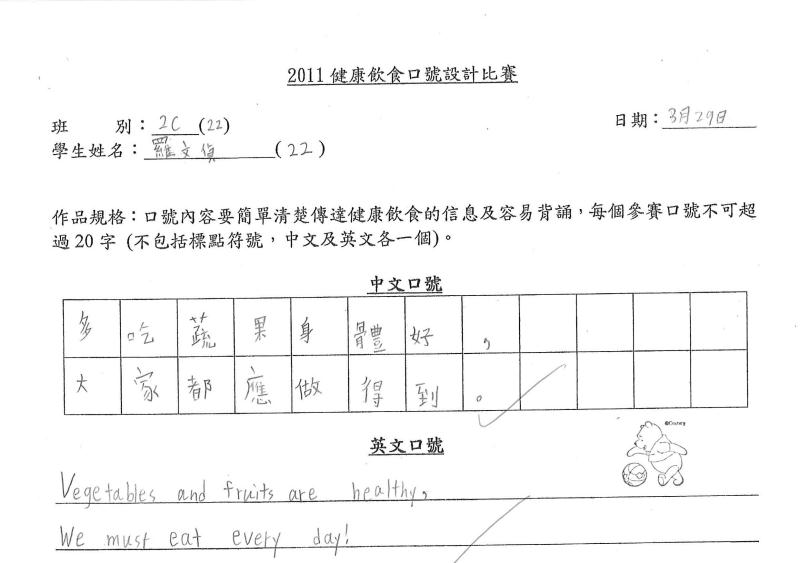 2011 健康飲食口號設計比賽
班　　別：2C (22)　　日期：3月29日
學生姓名：羅文偵 (22)
作品規格：口號內容要簡單清楚傳達健康飲食的信息及容易背誦，每個參賽口號不可超
過 20 字 (不包括標點符號，中文及英文各一個)。
中文口號
多吃蔬果身體好，
大家都應做得到。
英文口號
©Disney
Vegetables and fruits are healthy,
We must eat every day!